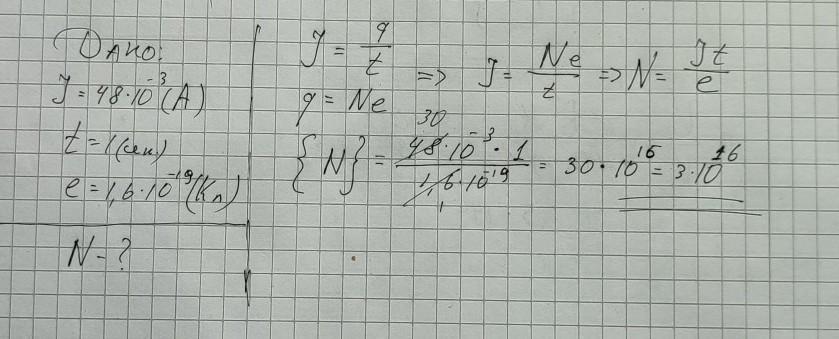 Дано:
J = 48·10⁻³(А)
t = 1(сек.)
e = 1,6·10⁻¹⁹(Кл)
N - ?
J = q/t
q = Ne
=> J = Ne/t => N = Jt/e
30
{N} = 48·10⁻³·1 / 1,6·10⁻¹⁹ = 30·10¹⁶ = 3·10¹⁶
1